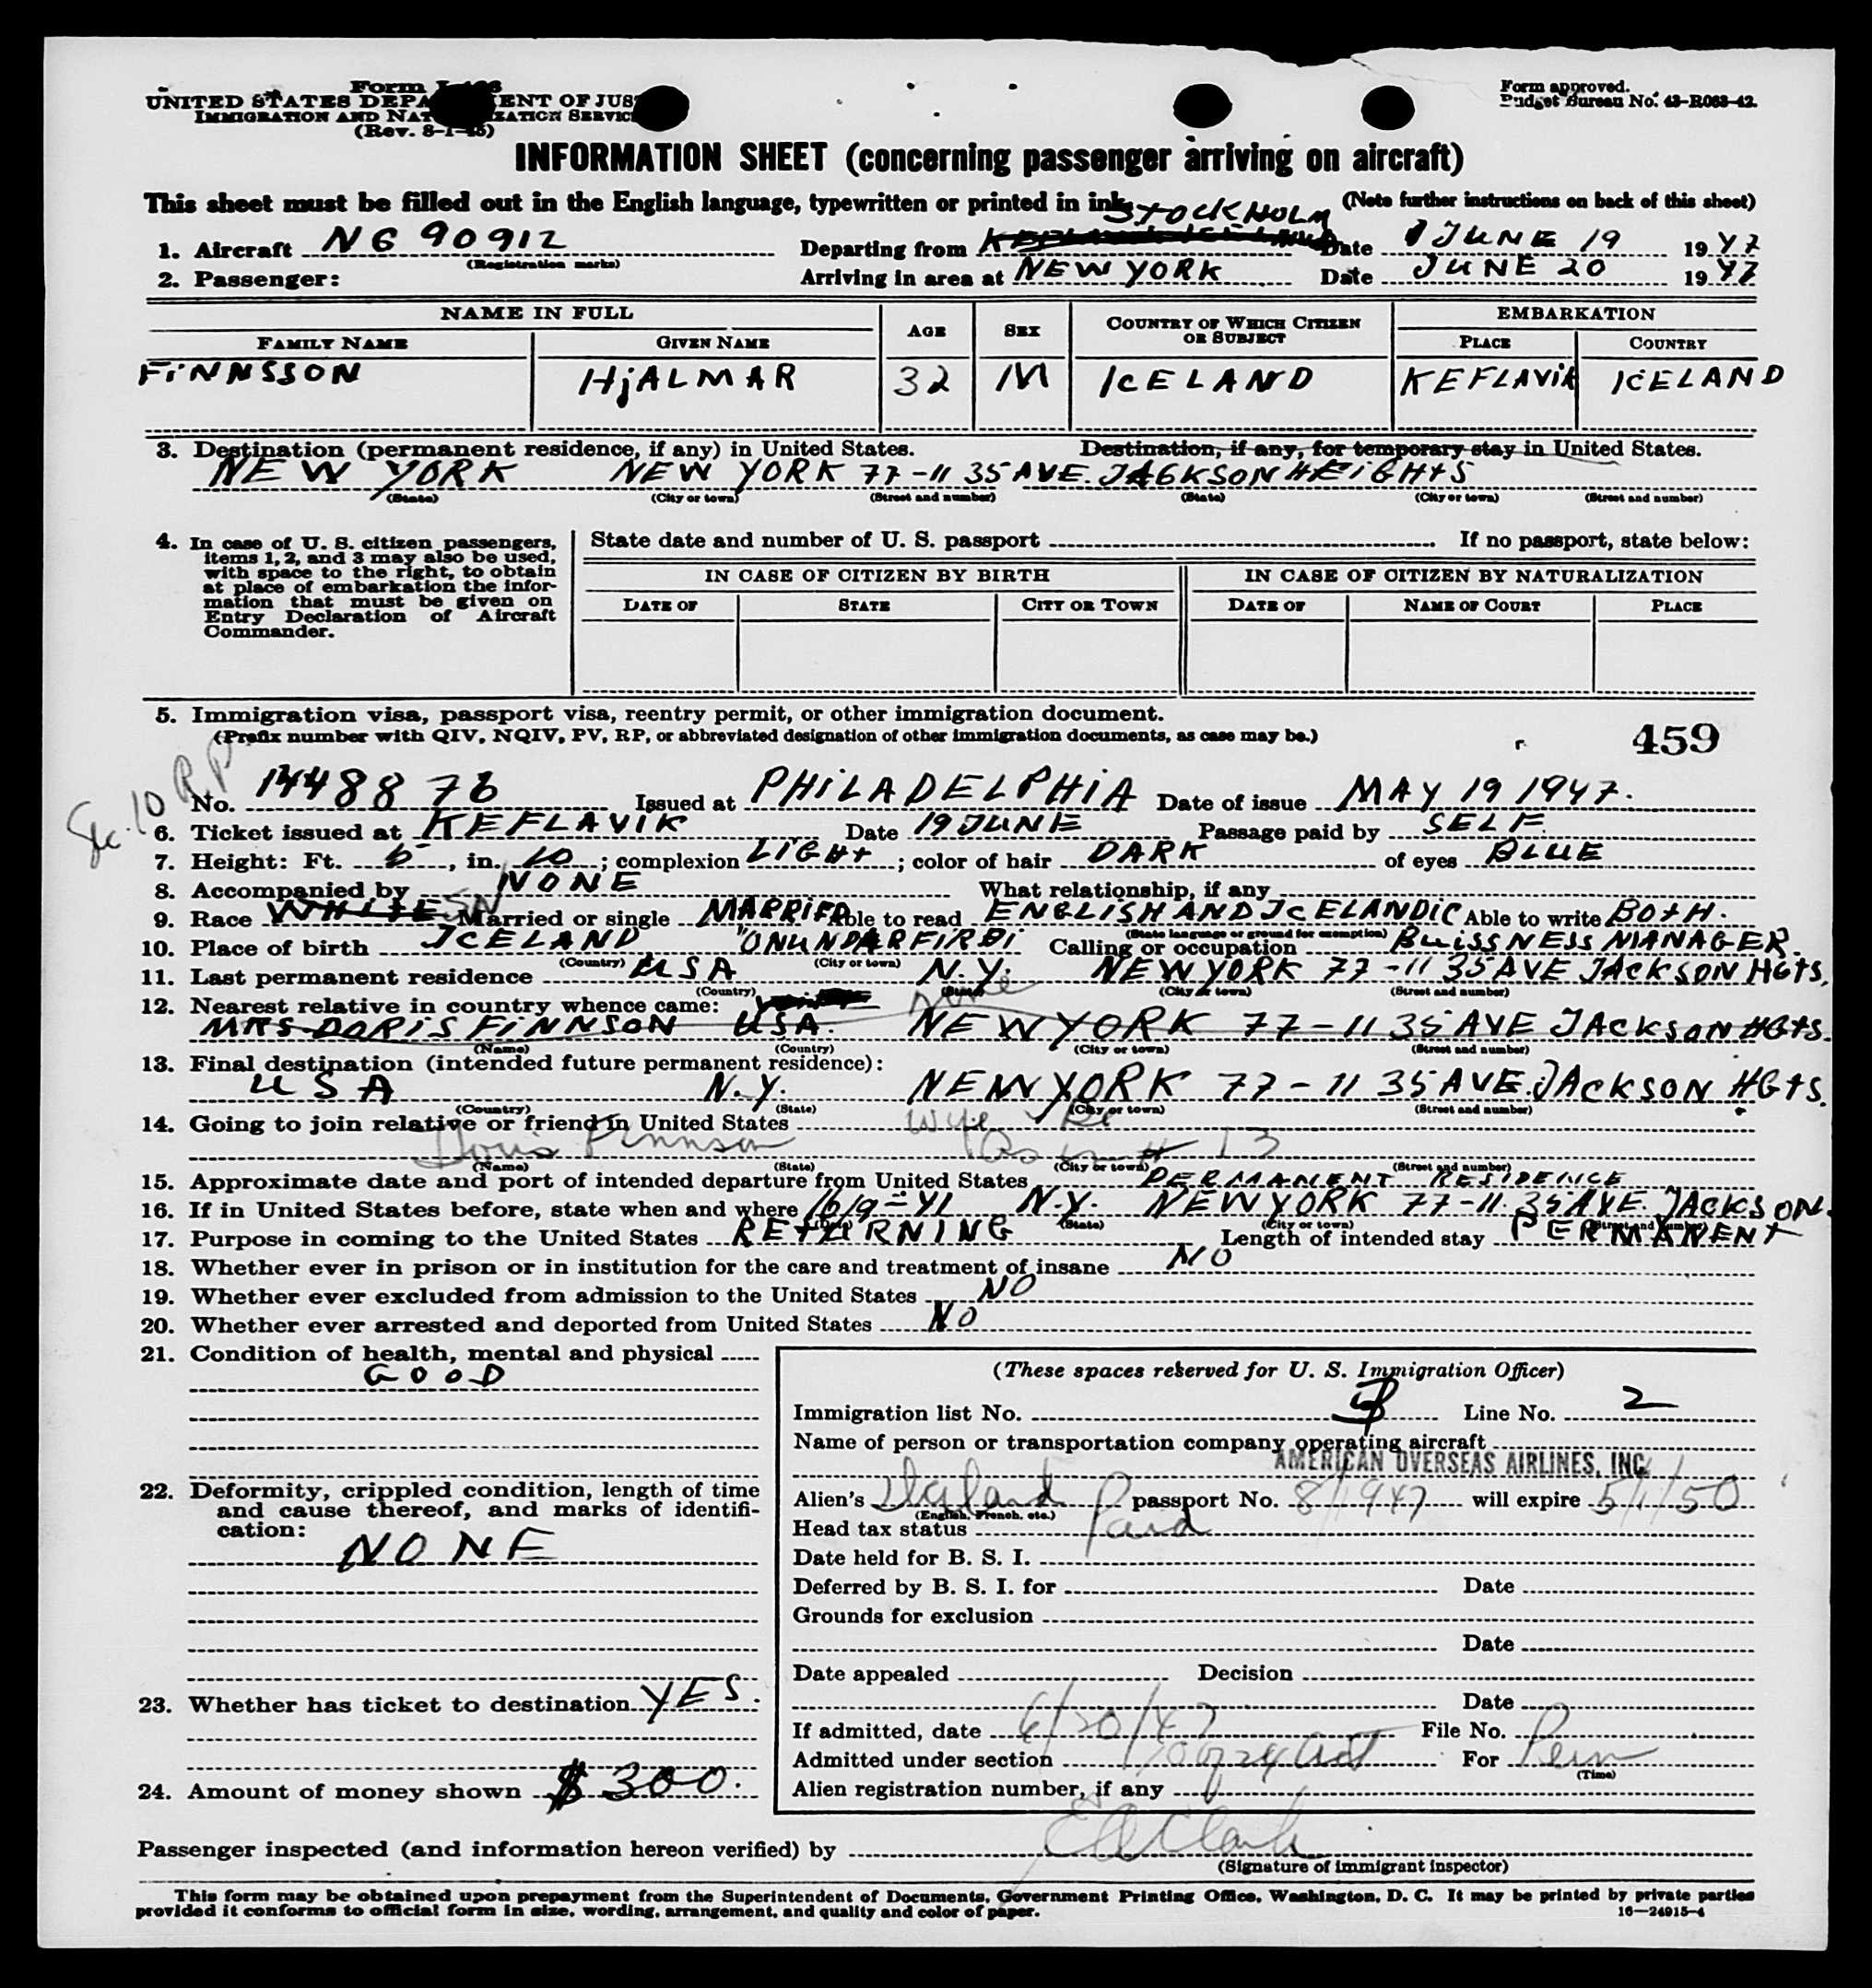 Form
UNITED STATES DEPA ENT OF JUS
IMMIGRATION AND NAT ZATION SERVIC
(Rev. 8-1-45)
Form approved.
Budget Bureau No. 43-R063-42.
INFORMATION SHEET (concerning passenger arriving on aircraft)
This sheet must be filled out in the English language, typewritten or printed in ink. (Note further instructions on back of this sheet)
STOCKHOLM
1. Aircraft N6 90912 Departing from Date JUNE 19 1947
(Registration marks)
2. Passenger: Arriving in area at NEW YORK Date JUNE 20 1947
NAME IN FULL AGE SEX COUNTRY OF WHICH CITIZEN OR SUBJECT EMBARKATION
FAMILY NAME GIVEN NAME PLACE COUNTRY
FINNSSON HjALMAR 32 M ICELAND KEFLAVIK ICELAND
3. Destination (permanent residence, if any) in United States. Destination, if any, for temporary stay in United States.
NEW YORK NEW YORK 77-11 35 AVE. JACKSON HEIGHTS
(State) (City or town) (Street and number) (State) (City or town) (Street and number)
4. In case of U. S. citizen passengers,
items 1, 2, and 3 may also be used,
with space to the right, to obtain
at place of embarkation the infor-
mation that must be given on
Entry Declaration of Aircraft
Commander.
State date and number of U. S. passport If no passport, state below:
IN CASE OF CITIZEN BY BIRTH IN CASE OF CITIZEN BY NATURALIZATION
DATE OF STATE CITY OR TOWN DATE OF NAME OF COURT PLACE
5. Immigration visa, passport visa, reentry permit, or other immigration document.
(Prefix number with QIV, NQIV, PV, RP, or abbreviated designation of other immigration documents, as case may be.)
459
Sec. 10 R.P.
No. 1448876 Issued at PHILADELPHIA Date of issue MAY 19 1947.
6. Ticket issued at KEFLAVIK Date 19 JUNE Passage paid by SELF
7. Height: Ft. 5, in. 10; complexion LIGHT; color of hair DARK of eyes BLUE
8. Accompanied by NONE What relationship, if any
9. Race WHITE SN Married or single MARRIED Able to read ENGLISH AND ICELANDIC Able to write BOTH.
(State language or ground for exemption)
10. Place of birth ICELAND "ONUNDARFIRDI Calling or occupation BUISSNESS MANAGER.
(Country) (City or town)
11. Last permanent residence USA N.Y. NEW YORK 77-11 35 AVE JACKSON HGTS.
(Country) (State) (City or town) (Street and number)
12. Nearest relative in country whence came: none
MRS DORIS FINNSON USA. NEW YORK 77-11 35 AVE JACKSON HGTS.
(Name) (Country) (City or town) (Street and number)
13. Final destination (intended future permanent residence):
USA N.Y. NEW YORK 77-11 35 AVE. JACKSON HGTS.
(Country) (State) (City or town) (Street and number)
14. Going to join relative or friend in United States Wife
Doris Finnson # 13
(Name) (State) (City or town) (Street and number)
15. Approximate date and port of intended departure from United States PERMANENT RESIDENCE
16. If in United States before, state when and where 16/9-41 N.Y. NEW YORK 77-11. 35 AVE. JACKSON.
(Date) (State) (City or town) (Street and Number)
17. Purpose in coming to the United States RETURNING Length of intended stay PERMANENT
18. Whether ever in prison or in institution for the care and treatment of insane NO
19. Whether ever excluded from admission to the United States NO
20. Whether ever arrested and deported from United States NO
21. Condition of health, mental and physical
GOOD
22. Deformity, crippled condition, length of time
and cause thereof, and marks of identifi-
cation:
NONE
23. Whether has ticket to destination YES.
24. Amount of money shown $300.
(These spaces reserved for U. S. Immigration Officer)
Immigration list No. Line No. 2
Name of person or transportation company operating aircraft
AMERICAN OVERSEAS AIRLINES, INC.
Alien's passport No. 8/1947 will expire 5/1/50
(English, French, etc.)
Head tax status Paid
Date held for B. S. I.
Deferred by B. S. I. for Date
Grounds for exclusion
Date
Date appealed Decision
Date
If admitted, date 6/20/47 File No.
Admitted under section For Perm
(Time)
Alien registration number, if any
Passenger inspected (and information hereon verified) by
(Signature of immigrant inspector)
This form may be obtained upon prepayment from the Superintendent of Documents, Government Printing Office, Washington, D. C. It may be printed by private parties
provided it conforms to official form in size, wording, arrangement, and quality and color of paper.
16—24915-4